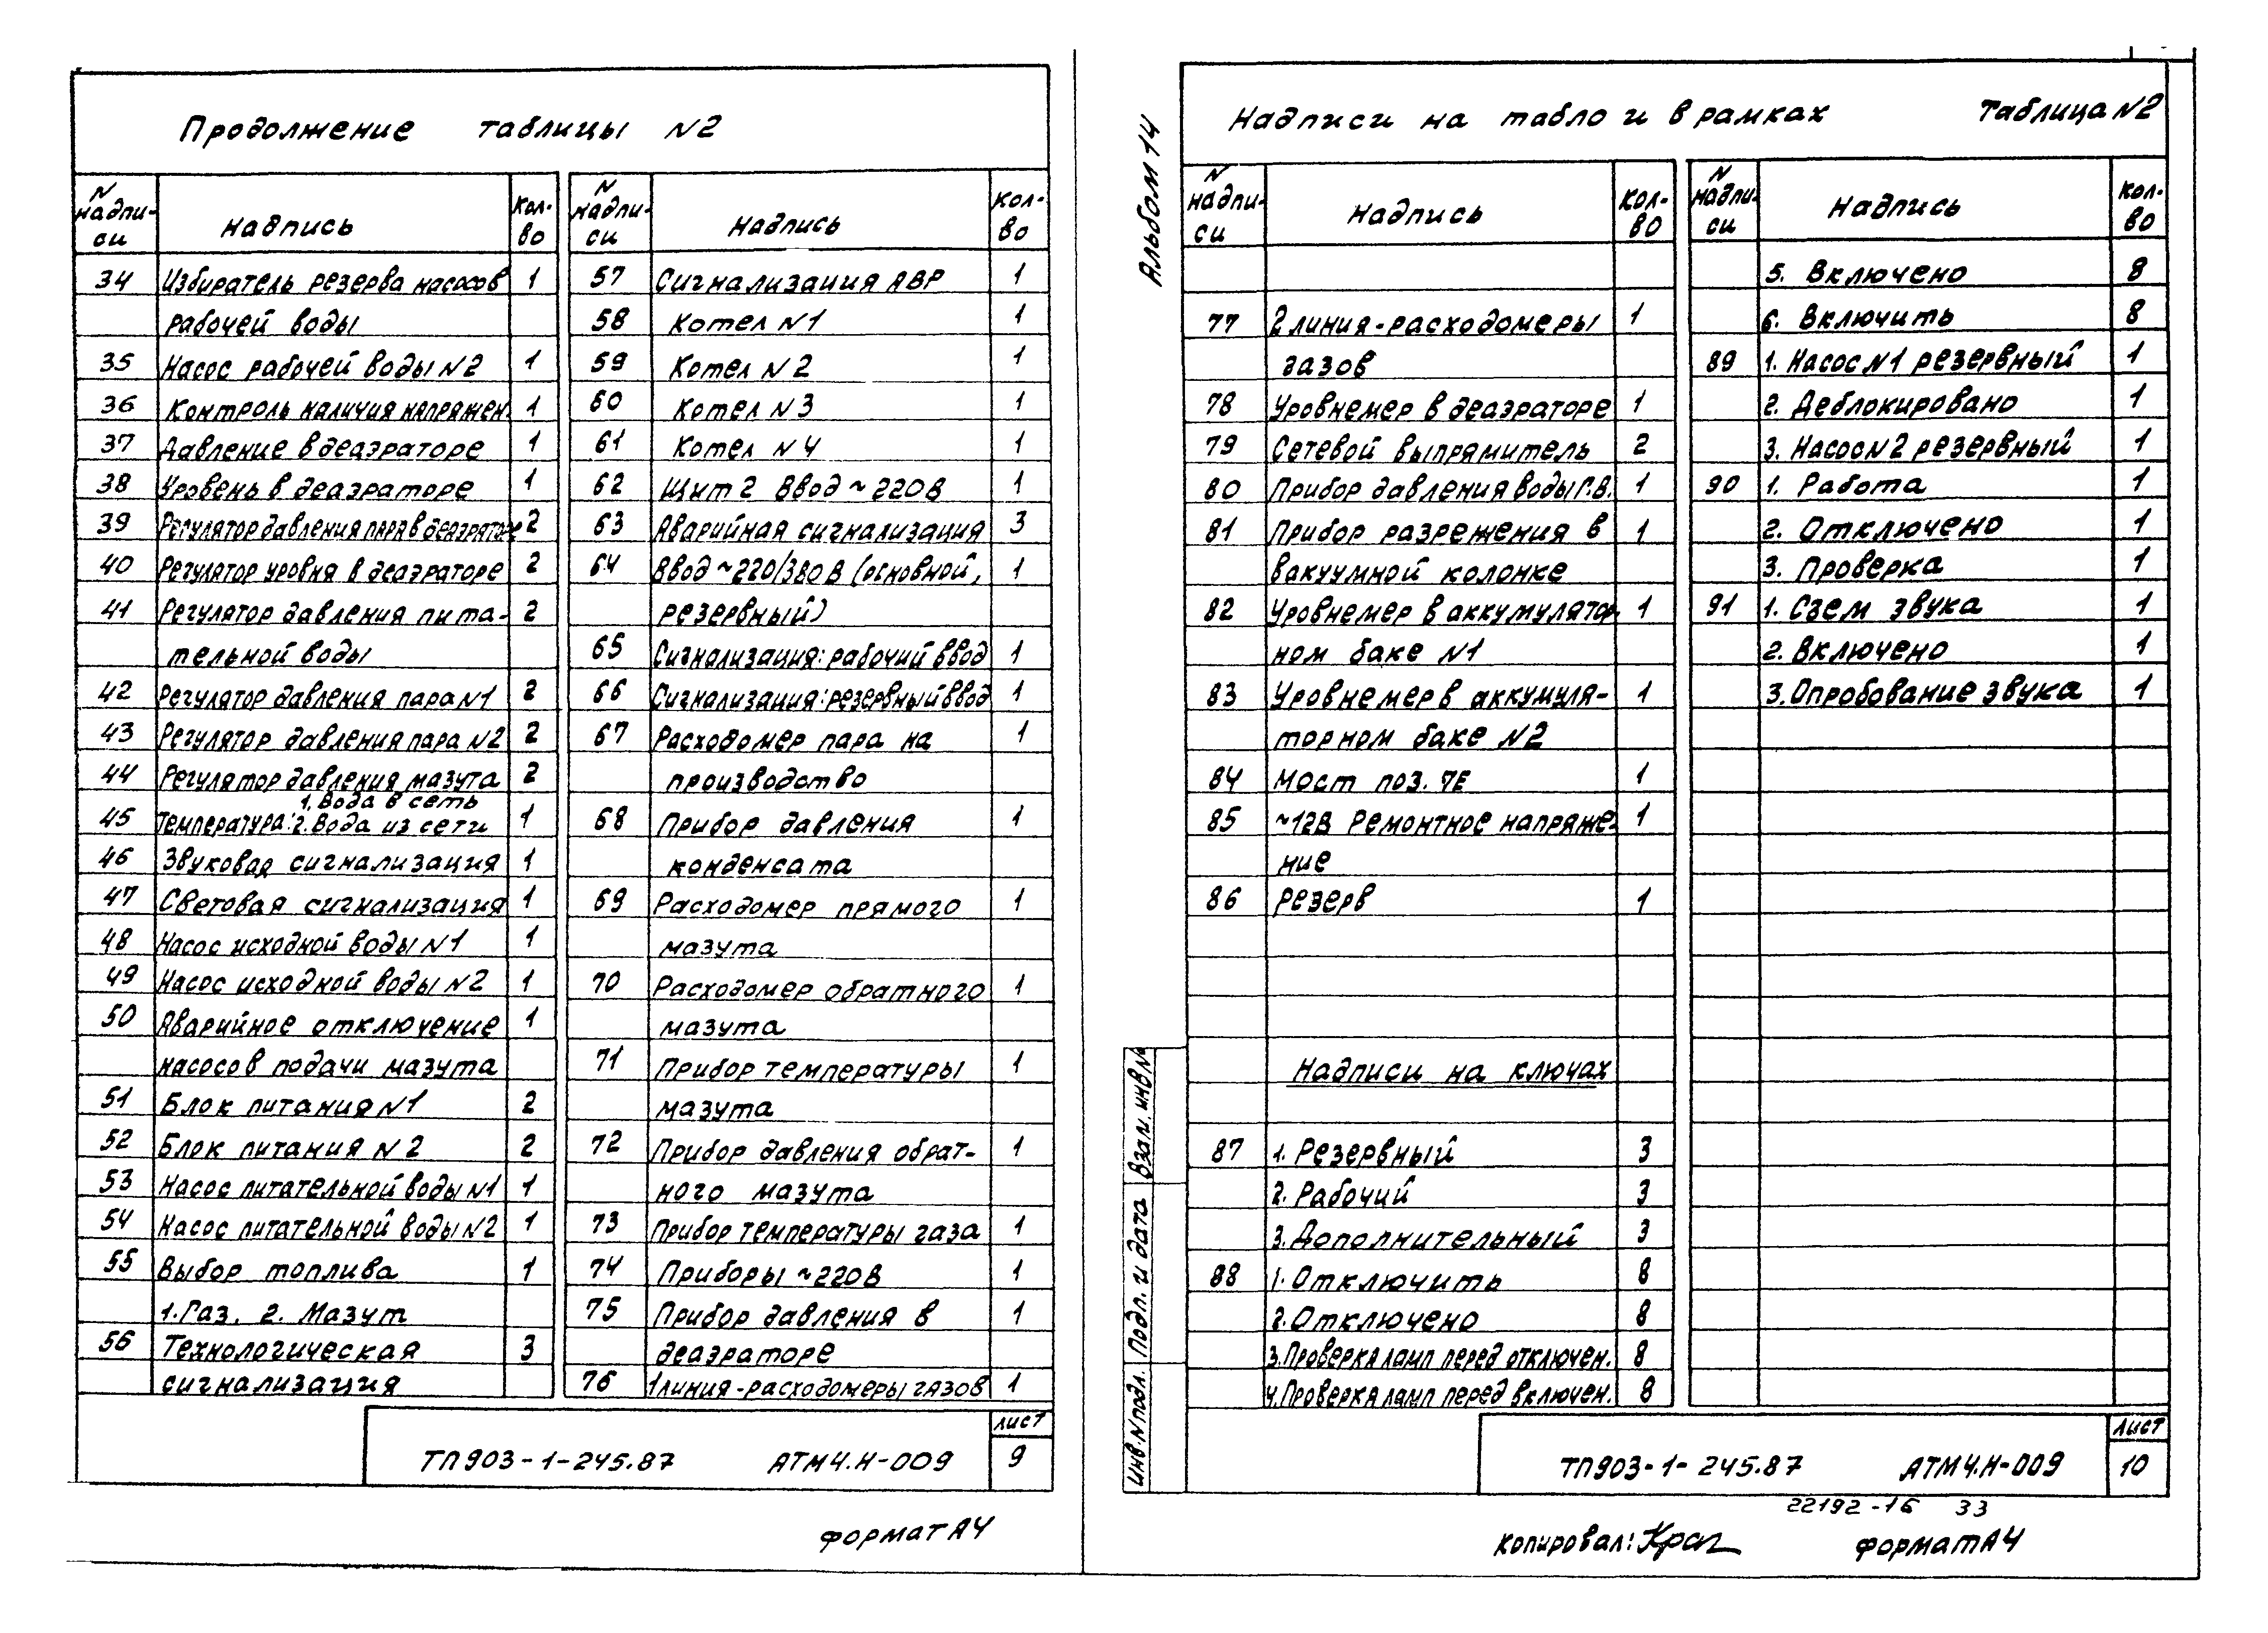 Продолжение таблицы N2
N надпи-
си
Надпись
Кол-
во
N надпи-
си
Надпись
Кол-
во
34 Избиратель резерва насосов 1
рабочей воды
35 Насос рабочей воды N2 1
36 Контроль наличия напряжен. 1
37 Давление в деаэраторе 1
38 Уровень в деаэраторе 1
39 Регулятор давления пара в деаэраторе 2
40 Регулятор уровня в деаэраторе 2
41 Регулятор давления пита- 2
тельной воды
42 Регулятор давления пара N1 2
43 Регулятор давления пара N2 2
44 Регулятор давления мазута 2
1. Вода в сеть
45 Температура: 2. Вода из сети 1
46 Звуковая сигнализация 1
47 Световая сигнализация 1
48 Насос исходной воды N1 1
49 Насос исходной воды N2 1
50 Аварийное отключение 1
насосов подачи мазута
51 Блок питания N1 2
52 Блок питания N2 2
53 Насос питательной воды N1 1
54 Насос питательной воды N2 1
55 Выбор топлива 1
1. Газ. 2. Мазут
56 Технологическая 3
сигнализация
57 Сигнализация АВР 1
58 Котел N1 1
59 Котел N2 1
60 Котел N3 1
61 Котел N4 1
62 Щит 2 Ввод ~220В 1
63 Аварийная сигнализация 3
64 Ввод ~220/380В (основной, 1
резервный)
65 Сигнализация: рабочий ввод 1
66 Сигнализация: резервный ввод 1
67 Расходомер пара на 1
производство
68 Прибор давления 1
конденсата
69 Расходомер прямого 1
мазута
70 Расходомер обратного 1
мазута
71 Прибор температуры 1
мазута
72 Прибор давления обрат- 1
ного мазута
73 Прибор температуры газа 1
74 Приборы ~220В 1
75 Прибор давления в 1
деаэраторе
76 1 линия-расходомеры газов 1
ТП903-1-245.87 АТМ4.Н-009
Лист
9
Формат А4
Альбом 14
Надписи на табло и в рамках Таблица N2
N
надпи-
си
Надпись
Кол-
во
N
надпи-
си
Надпись
Кол-
во
77 2 линия-расходомеры 1
газов
78 Уровнемер в деаэраторе 1
79 Сетевой выпрямитель 2
80 Прибор давления воды Г.В. 1
81 Прибор разрежения в 1
вакуумной колонке
82 Уровнемер в аккумулятор- 1
ном баке N1
83 Уровнемер в аккумуля- 1
торном баке N2
84 Мост поз. 7Е 1
85 ~12В Ремонтное напряже- 1
ние
86 Резерв 1
Надписи на ключах
87 1. Резервный 3
2. Рабочий 3
3. Дополнительный 3
88 1. Отключить 8
2. Отключено 8
3. Проверка ламп перед отключен. 8
4. Проверка ламп перед включен. 8
5. Включено 8
6. Включить 8
89 1. Насос N1 резервный 1
2. Деблокировано 1
3. Насос N2 резервный 1
90 1. Работа 1
2. Отключено 1
3. Проверка 1
91 1. Сзем звука 1
2. Включено 1
3. Опробование звука 1
Взам. инв N
Подп. и дата
Инв. N подл.
ТП903-1-245.87 АТМ4.Н-009
Лист
10
22192-16 33
Копировал: Формат А4